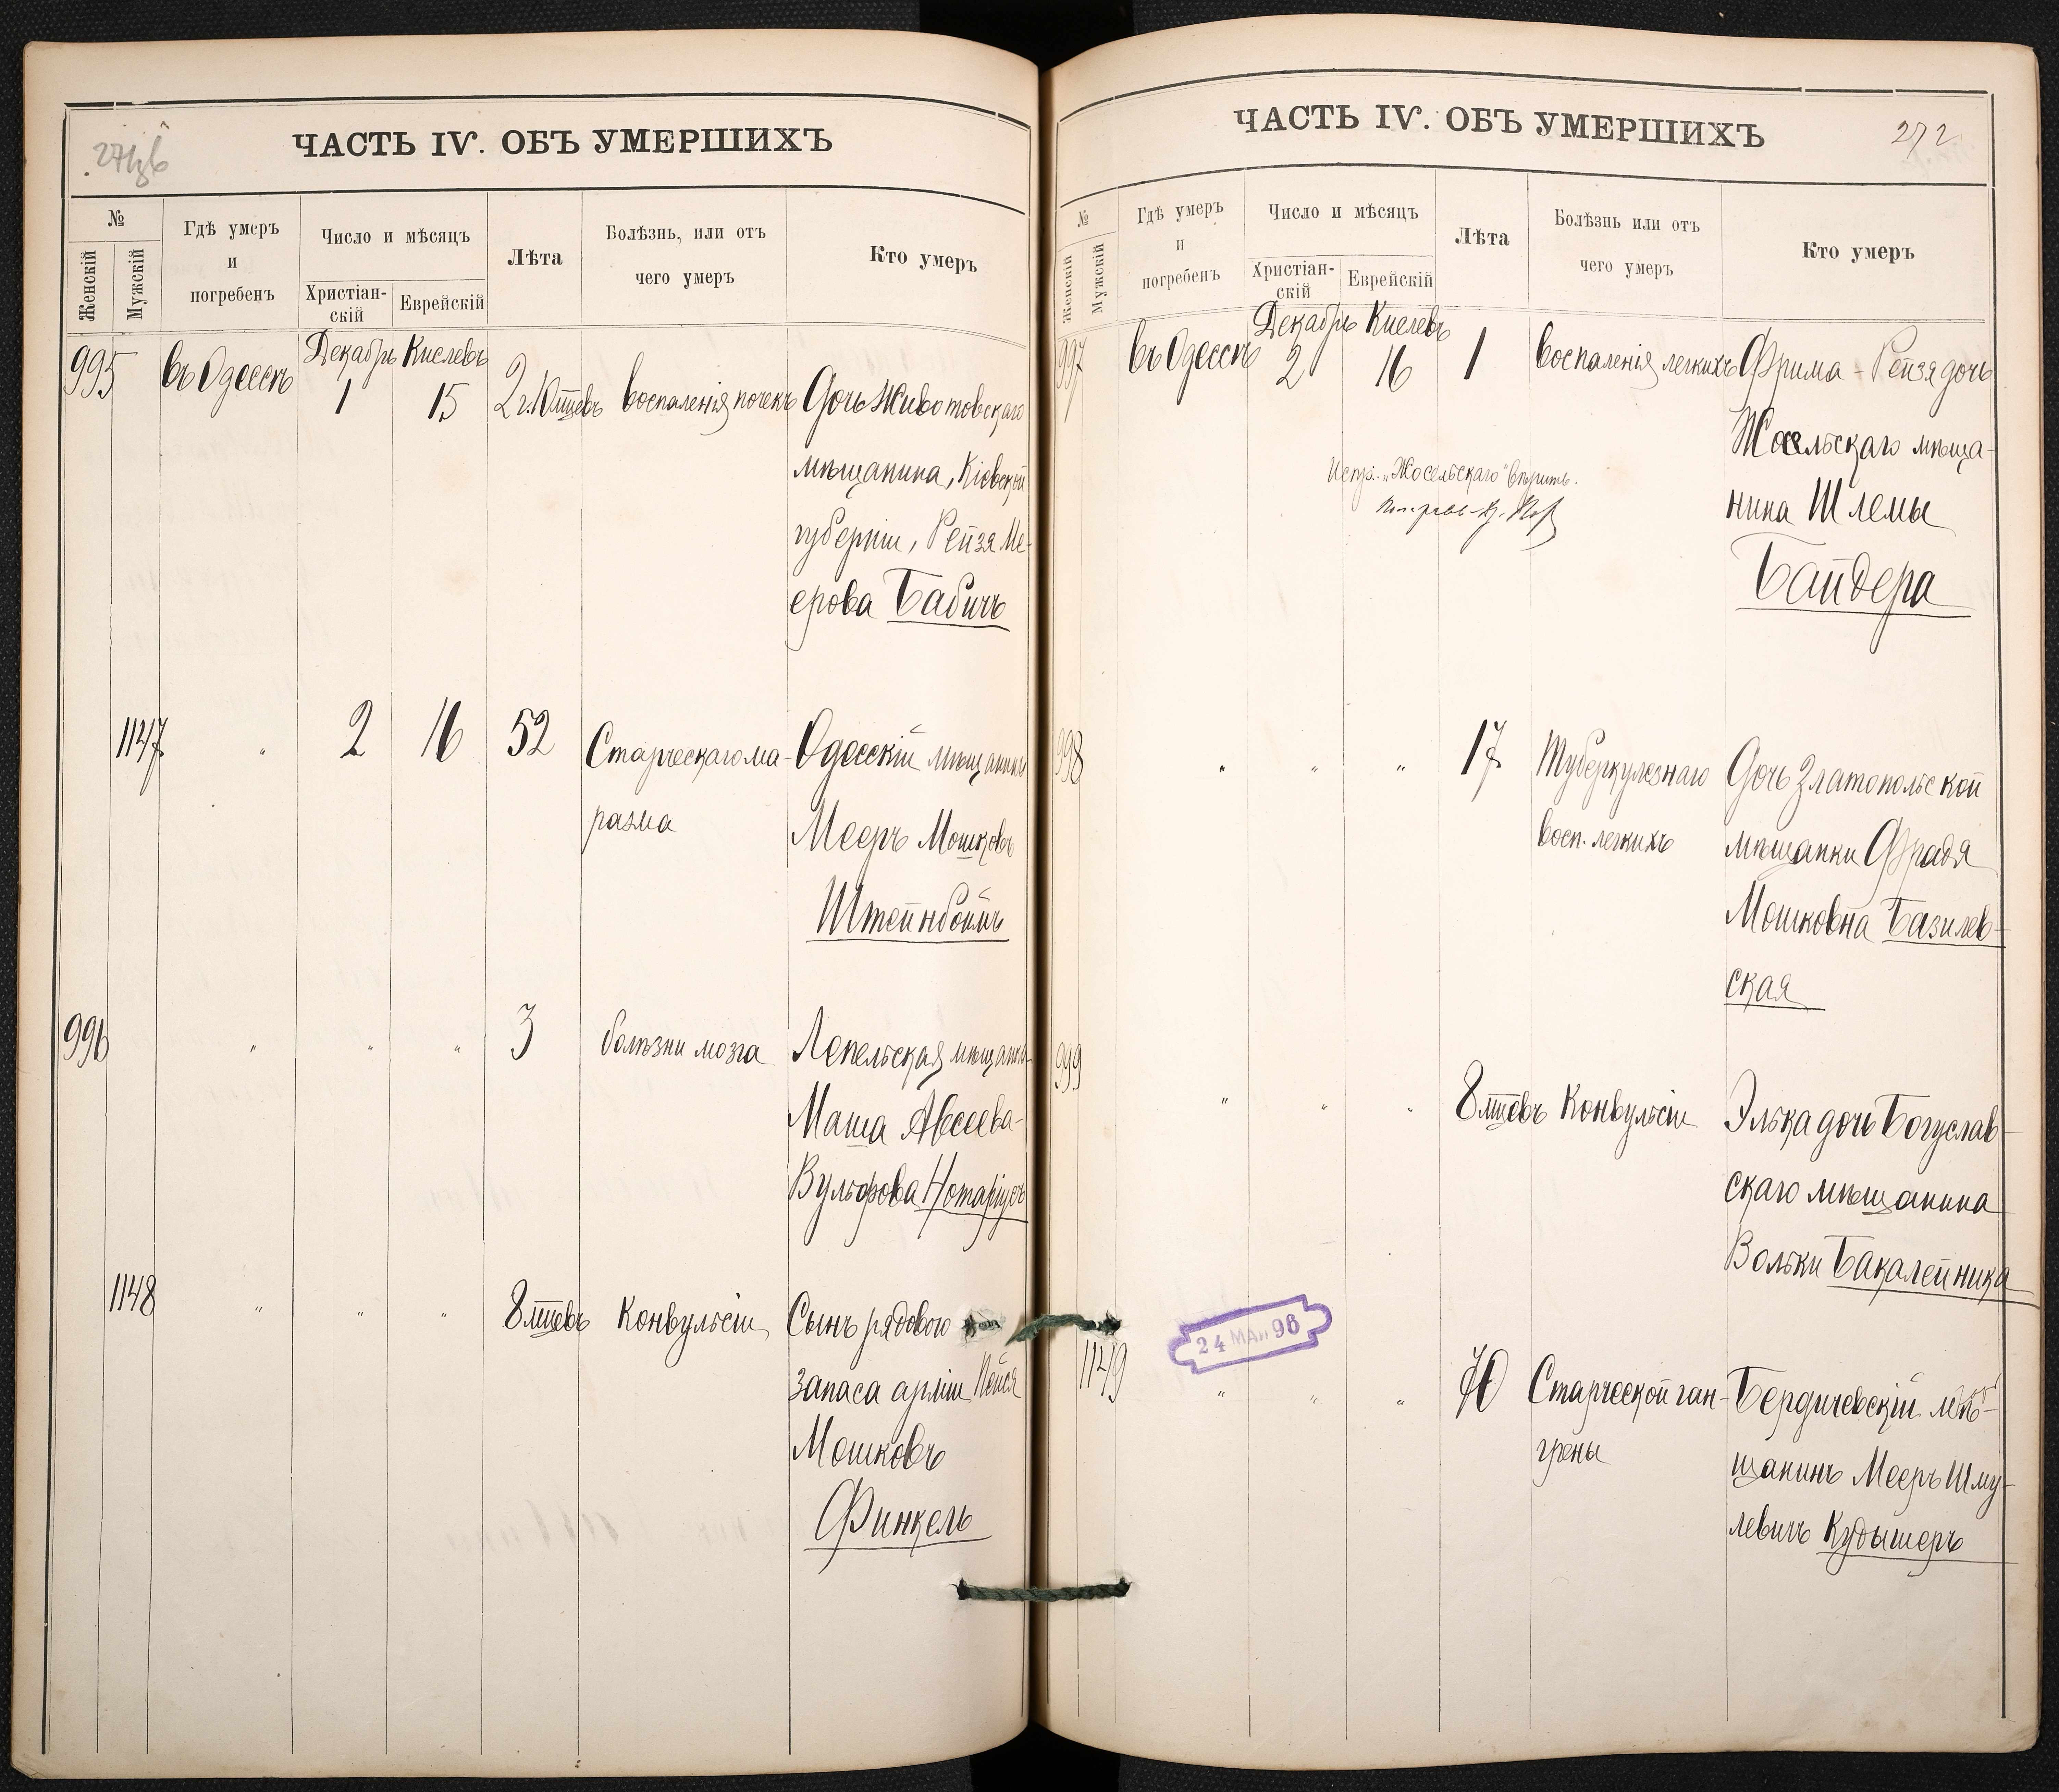 ЧАСТЬ IV. ОБЪ УМЕРШИХЪ
№
Женскій
Мужскій
Гдѣ умеръ
и
погребенъ
Число и мѣсяцъ
Христіан-
скій
Еврейскій
Лѣта
Болѣзнь, или отъ
чего умеръ
Кто умеръ
Декабрь Кислевъ
995 въ Одессѣ 1 15 2 г. 10 мѣцевъ воспаленія почекъ Дочь Животовскаго
мѣщанина, Кіевской
губерніи, Рейзя Ме-
ерова Бабичъ
1147 " 2 16 52 Старческаго ма- Одесскій мѣщанинъ
разма Мееръ Мошковъ
Штейнбоймъ
996 " " " 3 болѣзни мозга Лепельская мѣщанка
Маша Авсеева-
Вульфова Нотаріусъ
1148 " " " 8 мѣцевъ Конвульсіи Сынъ рядового
запаса арміи Пейся
Мошковъ
Финкель
ЧАСТЬ IV. ОБЪ УМЕРШИХЪ 272
№
Женскій
Мужскій
Гдѣ умеръ
и
погребенъ
Число и мѣсяцъ
Христіан-
скій
Еврейскій
Лѣта
Болѣзнь или отъ
чего умеръ
Кто умеръ
Декабрь Кислевъ
997 въ Одессѣ 2 16 1 воспаленія легкихъ Фрима-Рейзя дочь
Жосельскаго мѣща-
нина Шлемы
Байдера
Испр. "Жосельскаго" вѣрить.
998 " " " 17 Туберкулезнаго Дочь Златопольской
восп. легкихъ мѣщанки Фрадя
Мошковна Базилев-
ская
999 " " " 8 мѣцевъ Конвульсіи Элька дочь Богуслав-
скаго мѣщанина
Вольки Бакалейника
24 МАЯ 96
1149 " " " 70 Старческой ган- Бердичевскій мѣ-
грены щанинъ Мееръ Шму-
левичъ Кудышеръ